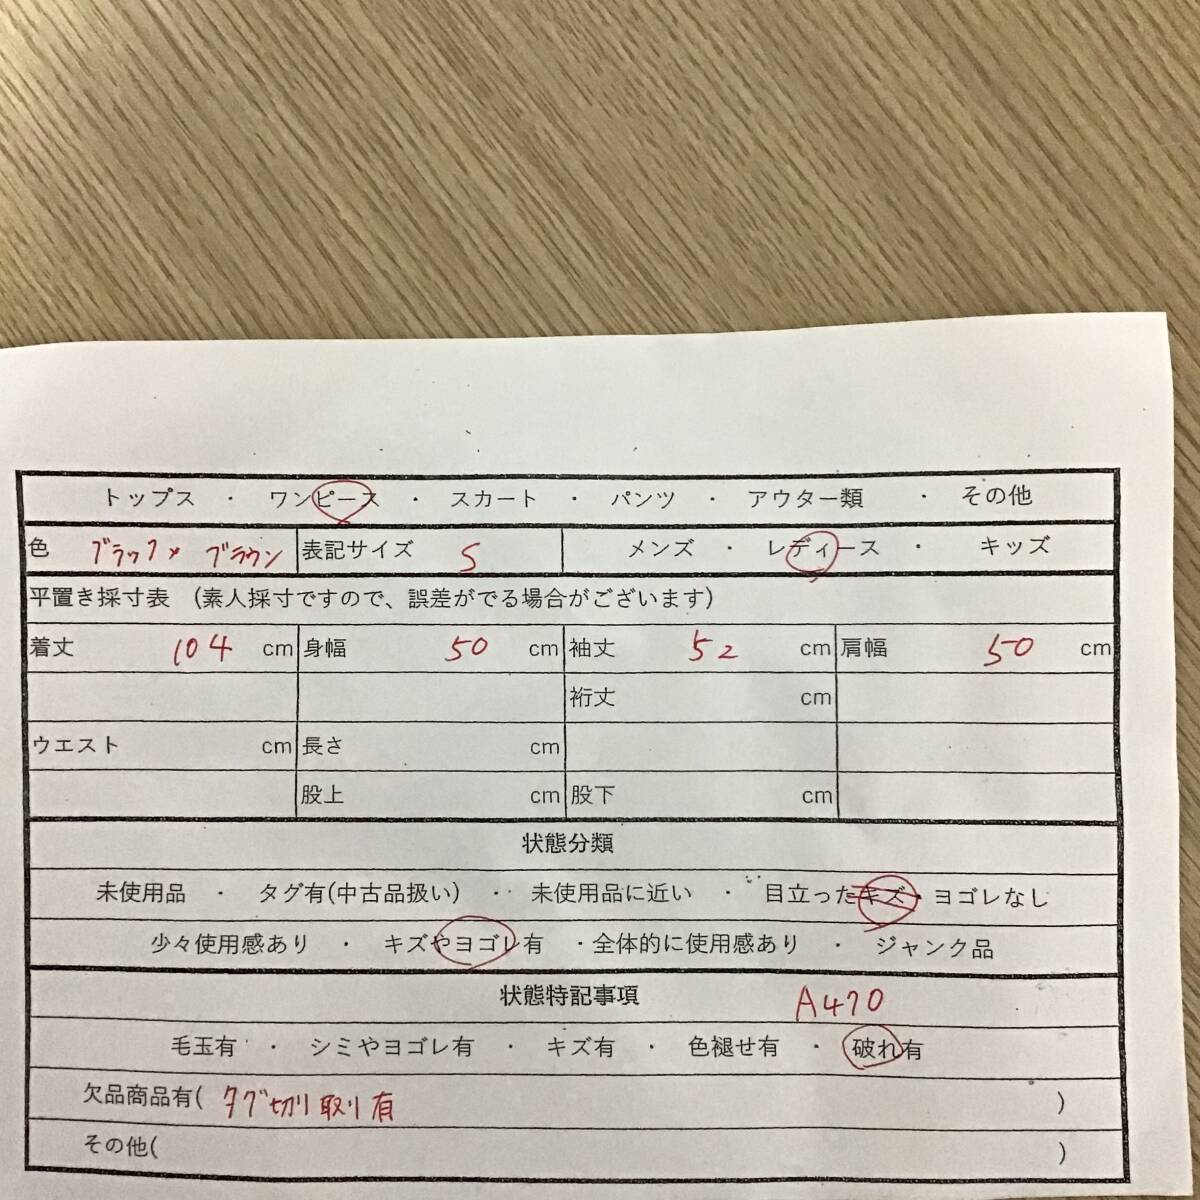 トップス ・ ワンピース ・ スカート ・ パンツ ・ アウター類 ・ その他
色 ブラック×ブラウン 表記サイズ S メンズ ・ レディース ・ キッズ
平置き採寸表 (素人採寸ですので、誤差がでる場合がございます)
着丈 104 cm 身幅 50 cm 袖丈 52 cm 肩幅 50 cm
裄丈 cm
ウエスト cm 長さ cm
股上 cm 股下 cm
状態分類
未使用品 ・ タグ有(中古品扱い) ・ 未使用品に近い ・ 目立ったキズ・ヨゴレなし
少々使用感あり ・ キズやヨゴレ有 ・全体的に使用感あり ・ ジャンク品
状態特記事項 A470
毛玉有 ・ シミやヨゴレ有 ・ キズ有 ・ 色褪せ有 ・ 破れ有
欠品商品有( タグ切り取り有 )
その他( )